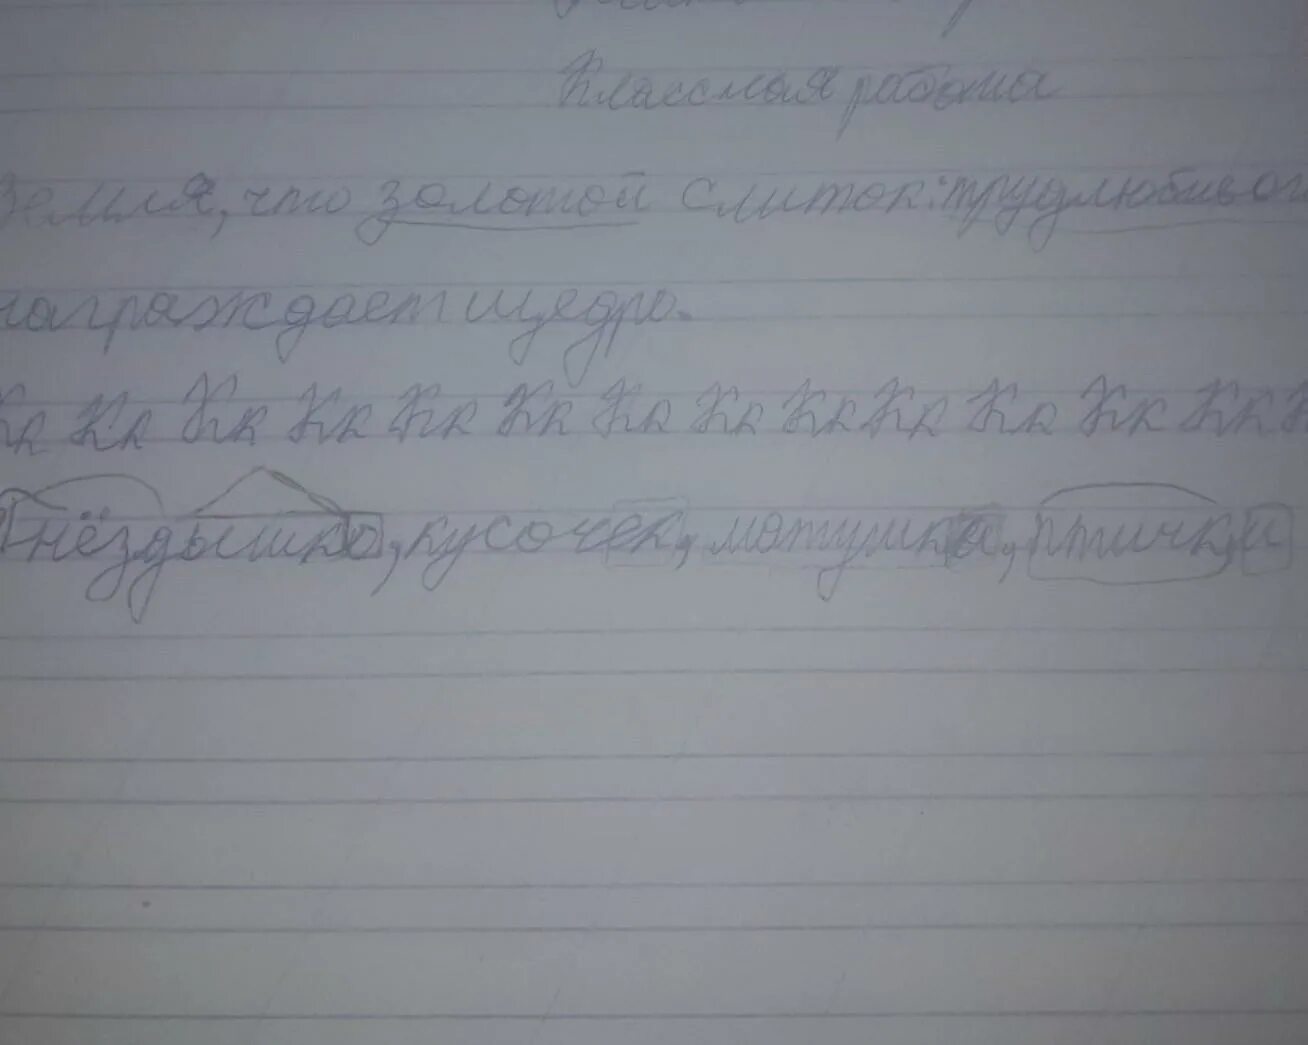 Классная работа
Земля, что золотой слиток: трудлюбивог
награждает щедро.
Кк Кк Кк Кк Кк Кк Кк Кк Кк Кк Кк Кк Кк К
Гнёздышко, кусочек, матушка, птички